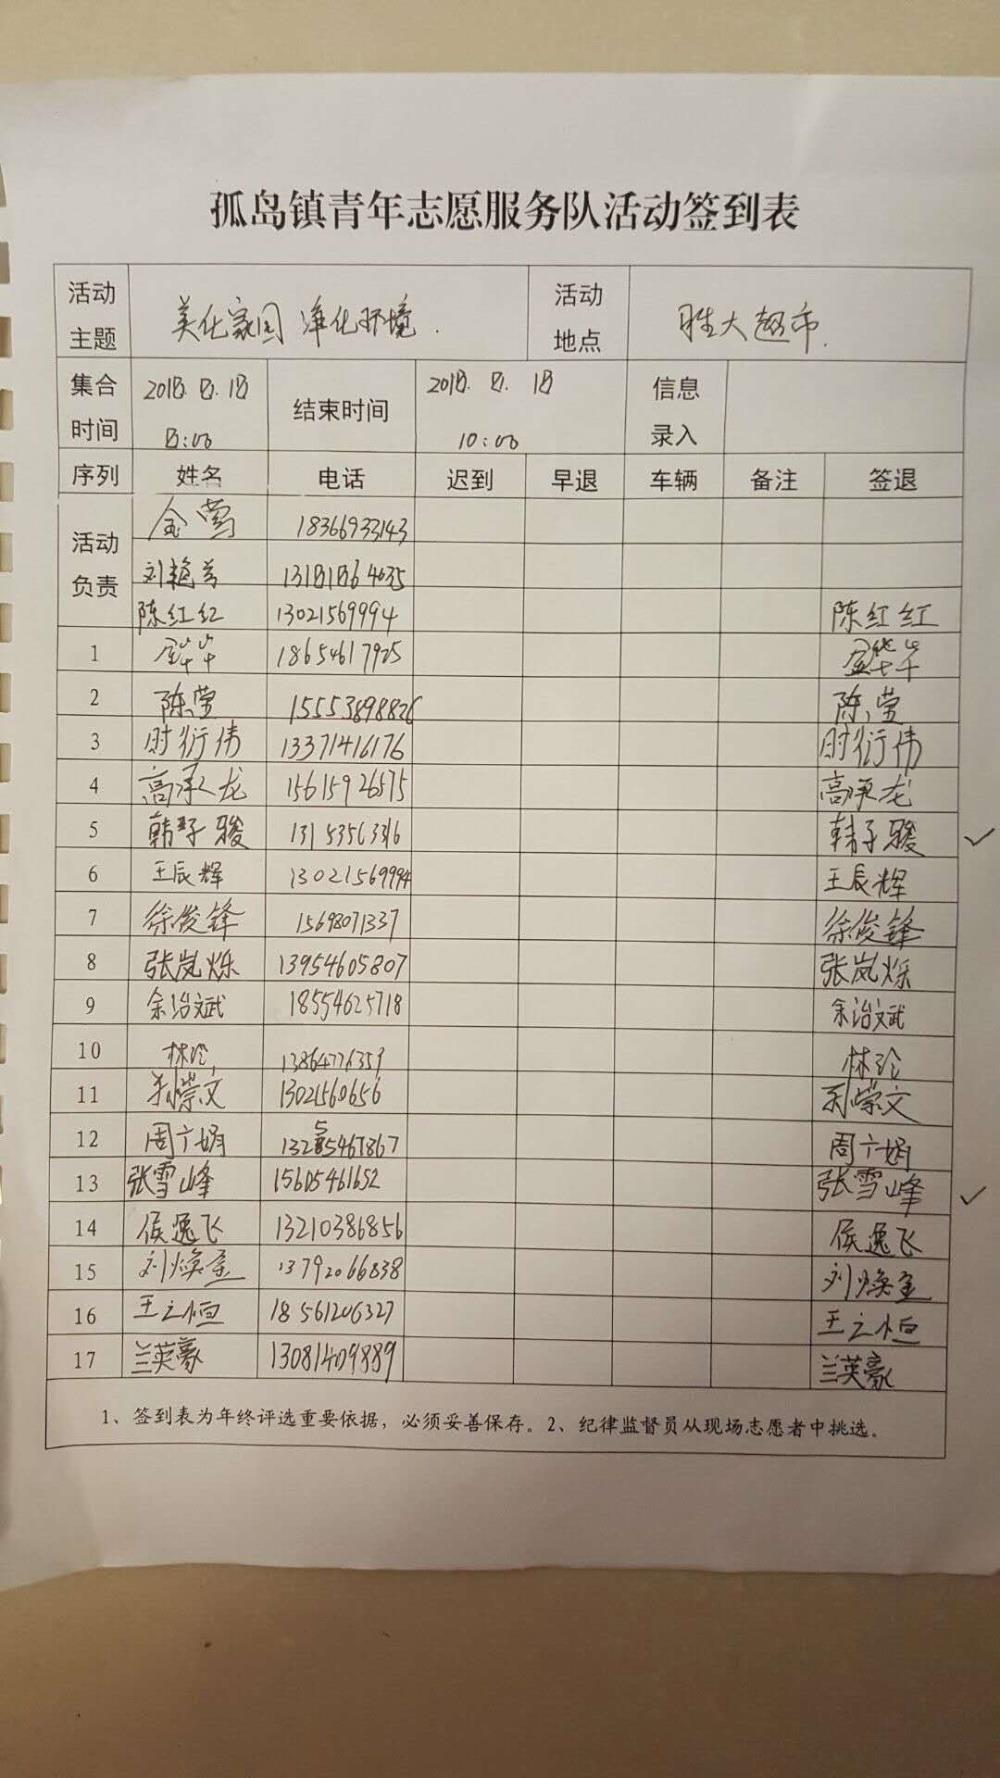 孤岛镇青年志愿服务队活动签到表
活动主题 美化家园 净化环境. 活动地点 胜大超市.
集合时间 2018.8.18 8:00 结束时间 2018.8.18 10:00 信息录入
序列 姓名 电话 迟到 早退 车辆 备注 签退
活动负责 金莺 18366933143
刘艳芳 13181864035
陈红红 13021569994 陈红红
1 18654617925
2 陈莹 15553898826 陈莹
3 时衍伟 13371416176 时衍伟
4 高承龙 15615926575 高承龙
5 韩子骏 韩子骏
6 王辰辉 13021569994 王辰辉
7 徐俊锋 15698071337 徐俊锋
8 张岚烁 13954605807 张岚烁
9 余治斌 18554625718 余治斌
10 林玲 13864776359 林玲
11 孙崇文 13021560656 孙崇文
12 周广娟 13255467867 周广娟
13 张雪峰 15605461652 张雪峰
14 侯逸飞 13210386856 侯逸飞
15 刘焕金 13792066838 刘焕金
16 王之恒 18561206327 王之恒
17 兰英豪 13081409889 兰英豪
1、签到表为年终评选重要依据，必须妥善保存。2、纪律监督员从现场志愿者中挑选。